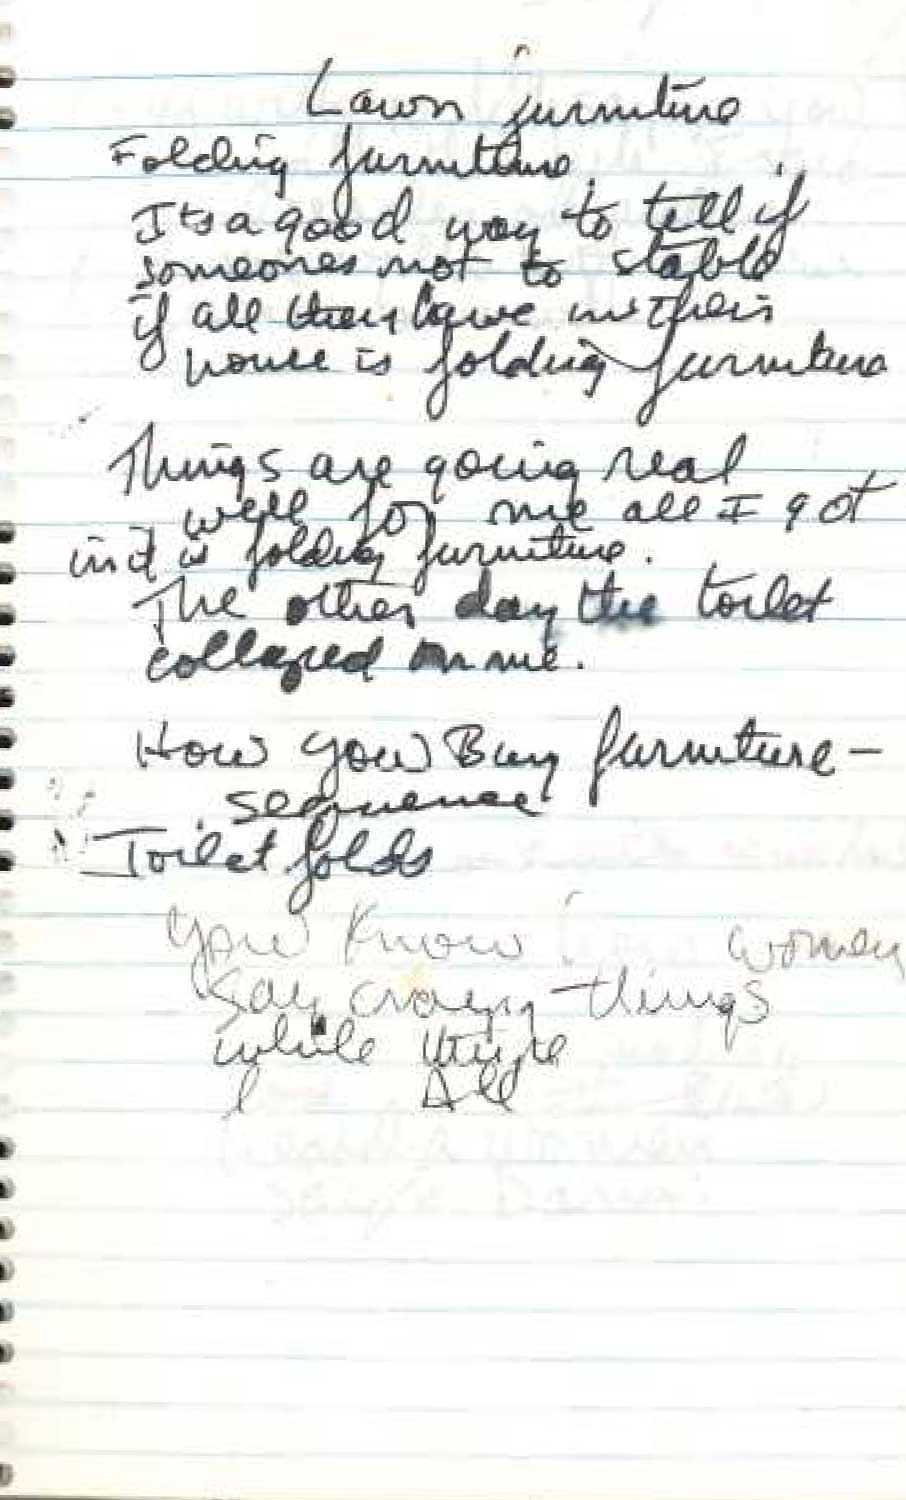 Lawn furniture
Folding furniture.
Its a good way to tell if
someones not to stable
if all they have in their
house is folding furniture
Things are going real
well for me all I got
in it is folding furniture.
The other day the toilet
collapsed on me.
How you Buy furniture -
sequence
Toilet folds
You know women
say crazy things
while they're
All